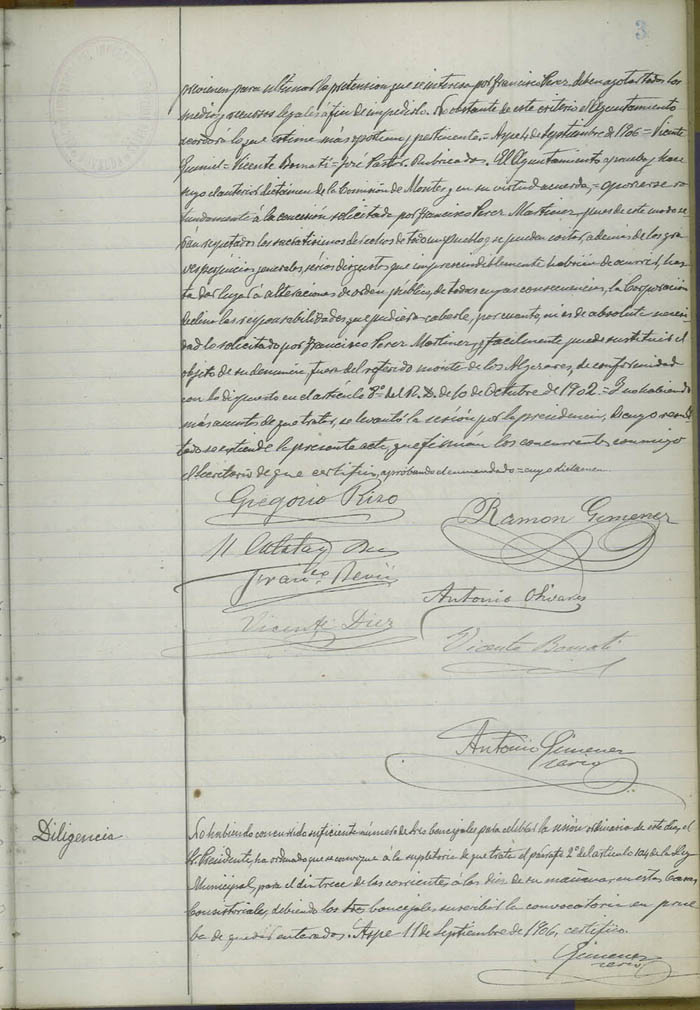 3
previenen para ultimar la pretension que se interesa por Francisco Perez, deben agotar todos los
medios y recursos legales á fin de impedirlo. No obstante de este criterio el Ayuntamiento
acordará lo que estime más oportuno y pertinente.= Aspe 4 de Septiembre de 1906 = Vicente
= Vicente Bonati = José Pastor. Rubricados. El Ayuntamiento aprueba y hace
suyo el anterior dictámen de la Comisión de Montes y en su virtud acuerda = oponerse ro
tundamente á la concesión solicitada por Francisco Perez Martinez pues de este modo se
rán respetados los sacratisimos derechos de todo un pueblo y se pueden evitar, además de los gra
ves perjuicios generales, sérios disgustos que imprescindiblemente habrian de ocurrir, has
ta dar lugar á alteraciones de orden público, de todas cuyas consecuencias, la Corporación
declina las responsabilidades que pudiera caberle, por cuanto, ni es de absoluta necesi
dad lo solicitado por Francisco Perez Martinez y facilmente puede sustituir el
objeto de su denuncia, fuera del referido monte de los Algezares, de conformidad
con lo dispuesto en el artículo 8º del R. D. de 10 de Octubre de 1902.= Y no habiendo
más asuntos de que tratar, se levantó la sesión por la presidencia, de cuyo resul
tado se extiende la presente acta, que firman los concurrentes conmigo
el Secretario de que certifico, aprobando el enmendado = cuyo dictamen
Gregorio Rizo
Ramon Gimenez
Antonio Olivares
Vicente Diez
Vicente Bonati
Antonio Gimenez
Diligencia
No habiendo concurrido suficiente número de Sres Concejales para celebrar la sesión ordinaria de este dia, el
Sr. Presidente, ha ordenado que se convoque á la supletoria de que trata el párrafo 2º del articulo 104 de la Ley
Municipal, para el dia trece de los corrientes, á las diez de su mañana en estas Casas
Consistoriales, debiendo los Sres Concejales suscribir la convocatoria en prue
ba de quedar enterados. Aspe 11 de Septiembre de 1906, certifico.
Gimenez